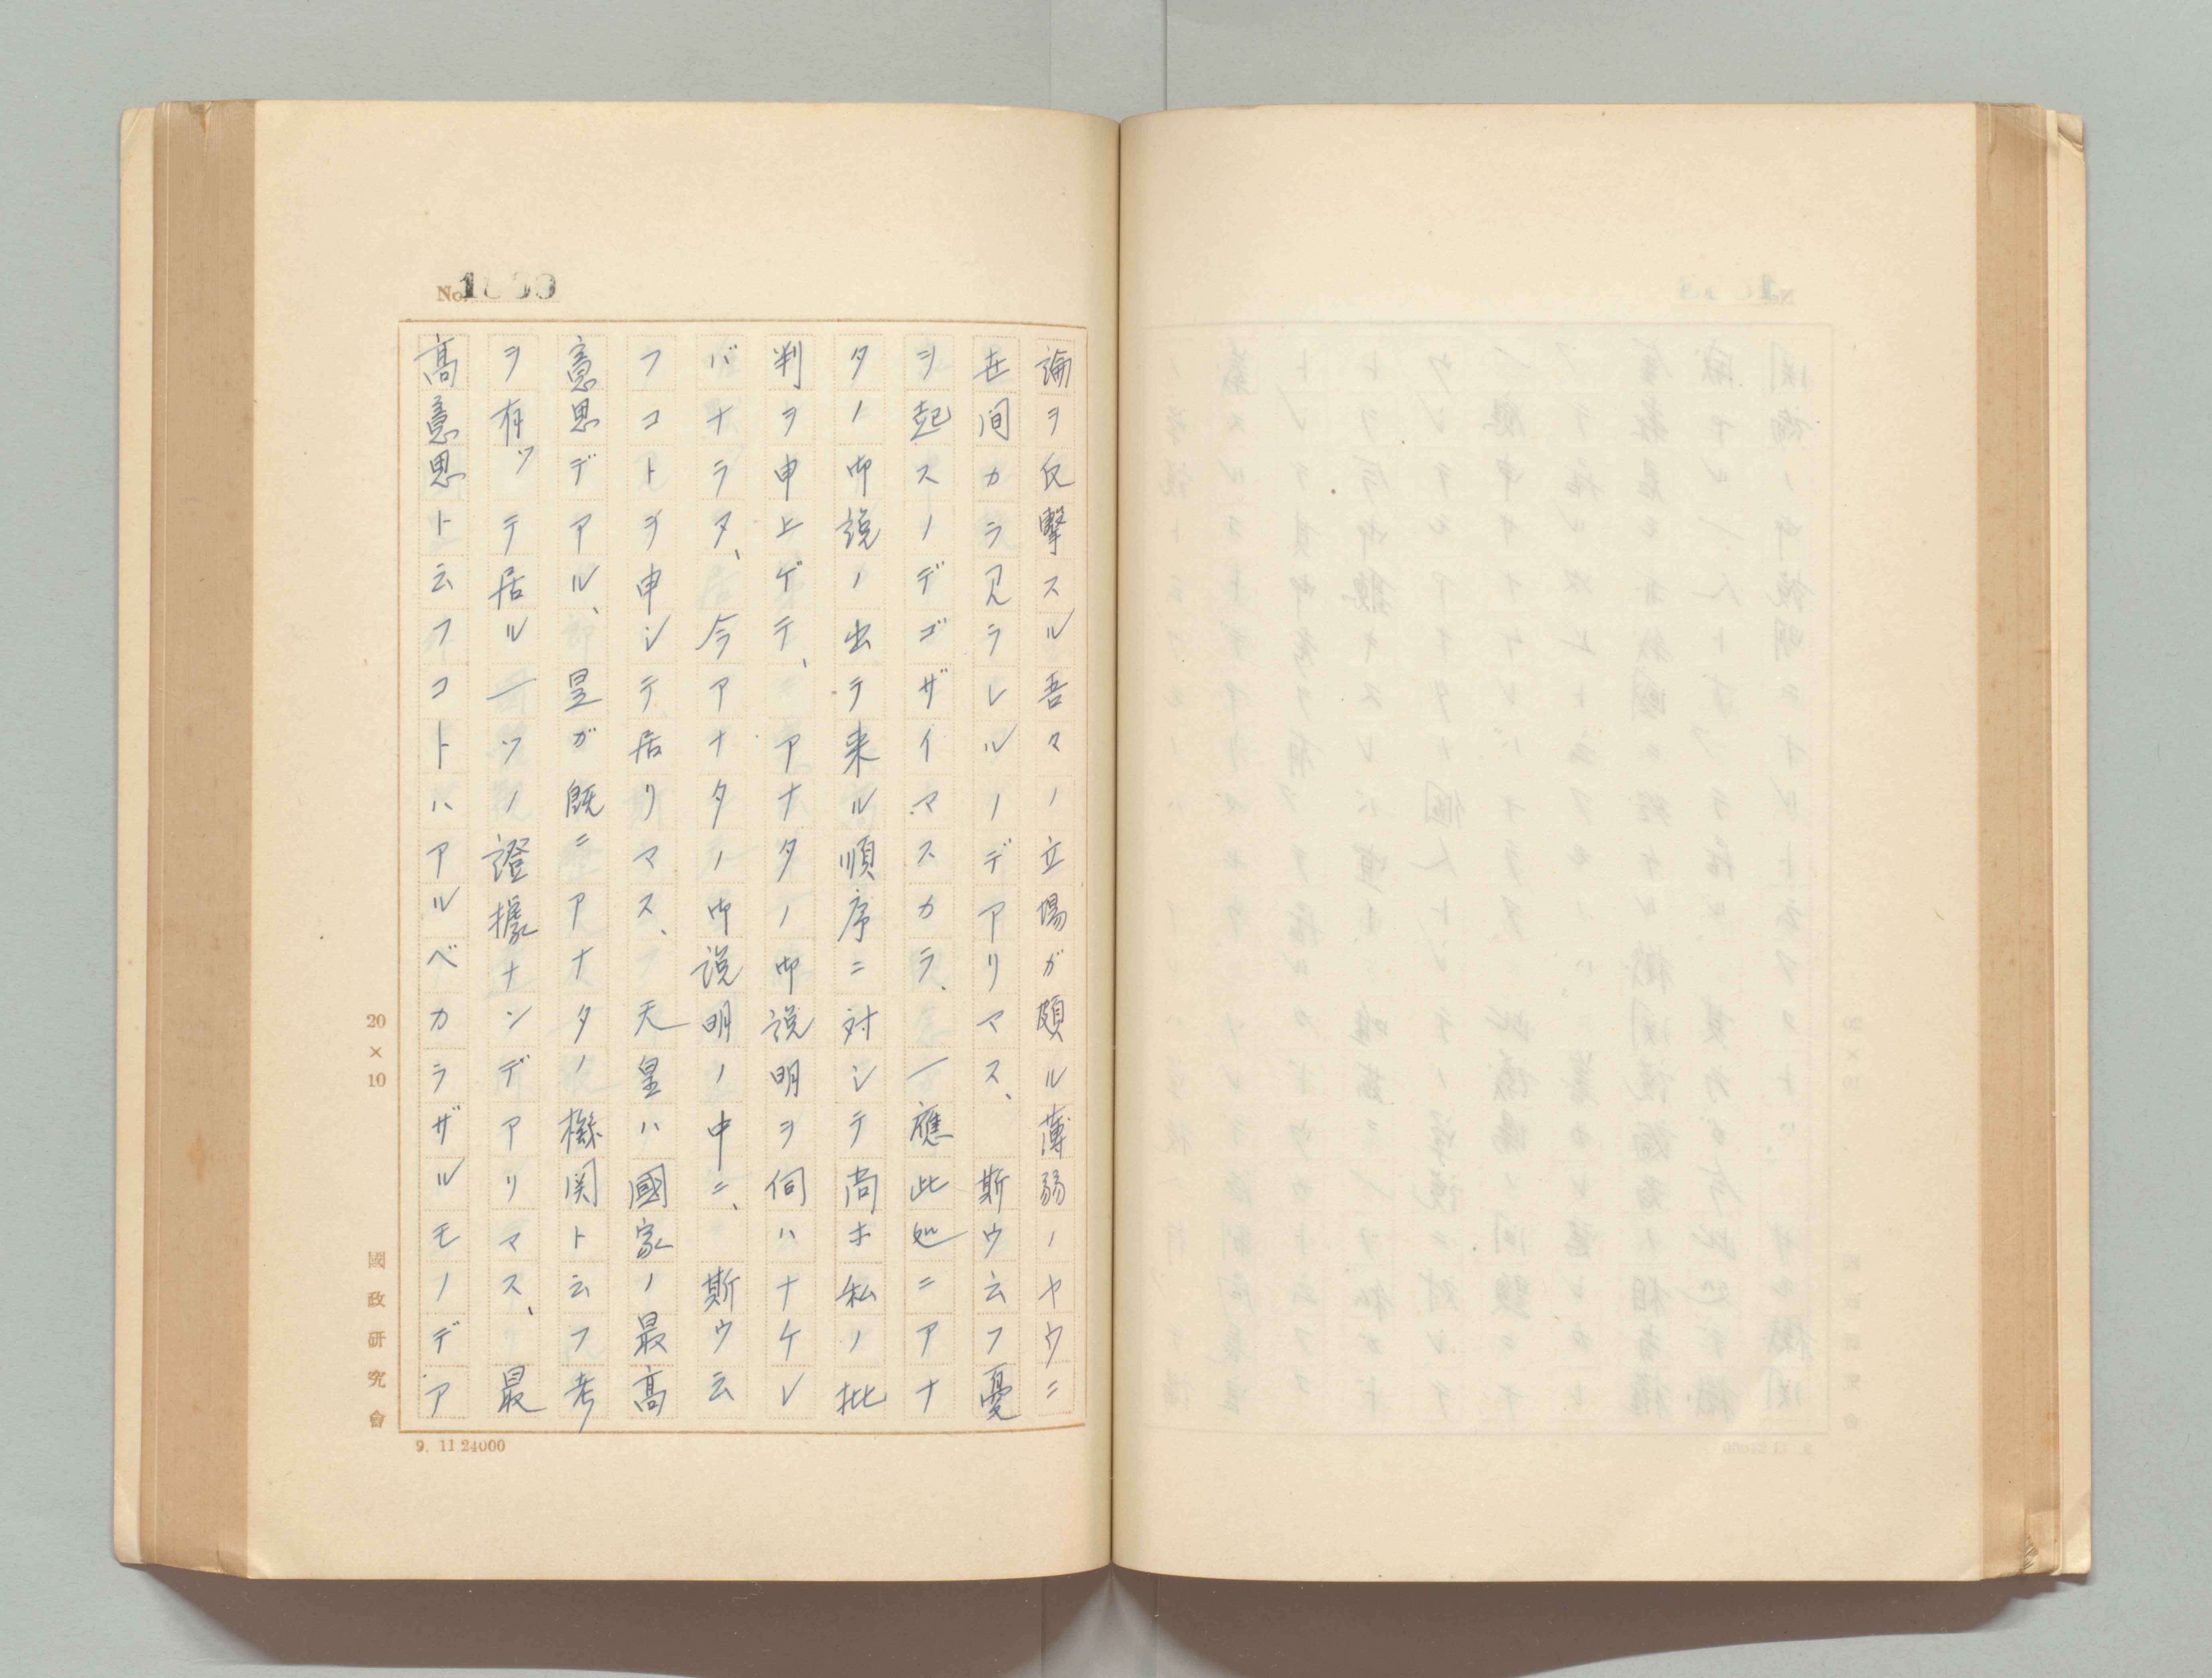 論ヲ反撃スル吾々ノ立場ガ頗ル薄弱ノヤウニ
世间カラ見ラレルノデアリマス、斯ウ云フ憂
ヲ起スノデゴザイマスカラ、一應此処ニアナ
タノ御説ノ出テ来ル順序ニ対シテ尚ホ私ノ批
判ヲ申上ゲテ、アナタノ御説明ヲ伺ハナケレ
バナラヌ、今アナタノ御説明ノ中ニ、斯ウ云
フコトヲ申シテ居リマス、天皇ハ國家ノ最高
意思デアル、皇ガ既ニアナタノ機関ト云フ考
ヲ有ツテ居ル一ツノ證據ナンデアリマス、最
高意思ト云フコトハアルベカラザルモノデア
20×10
國政研究會
9. 11.24000